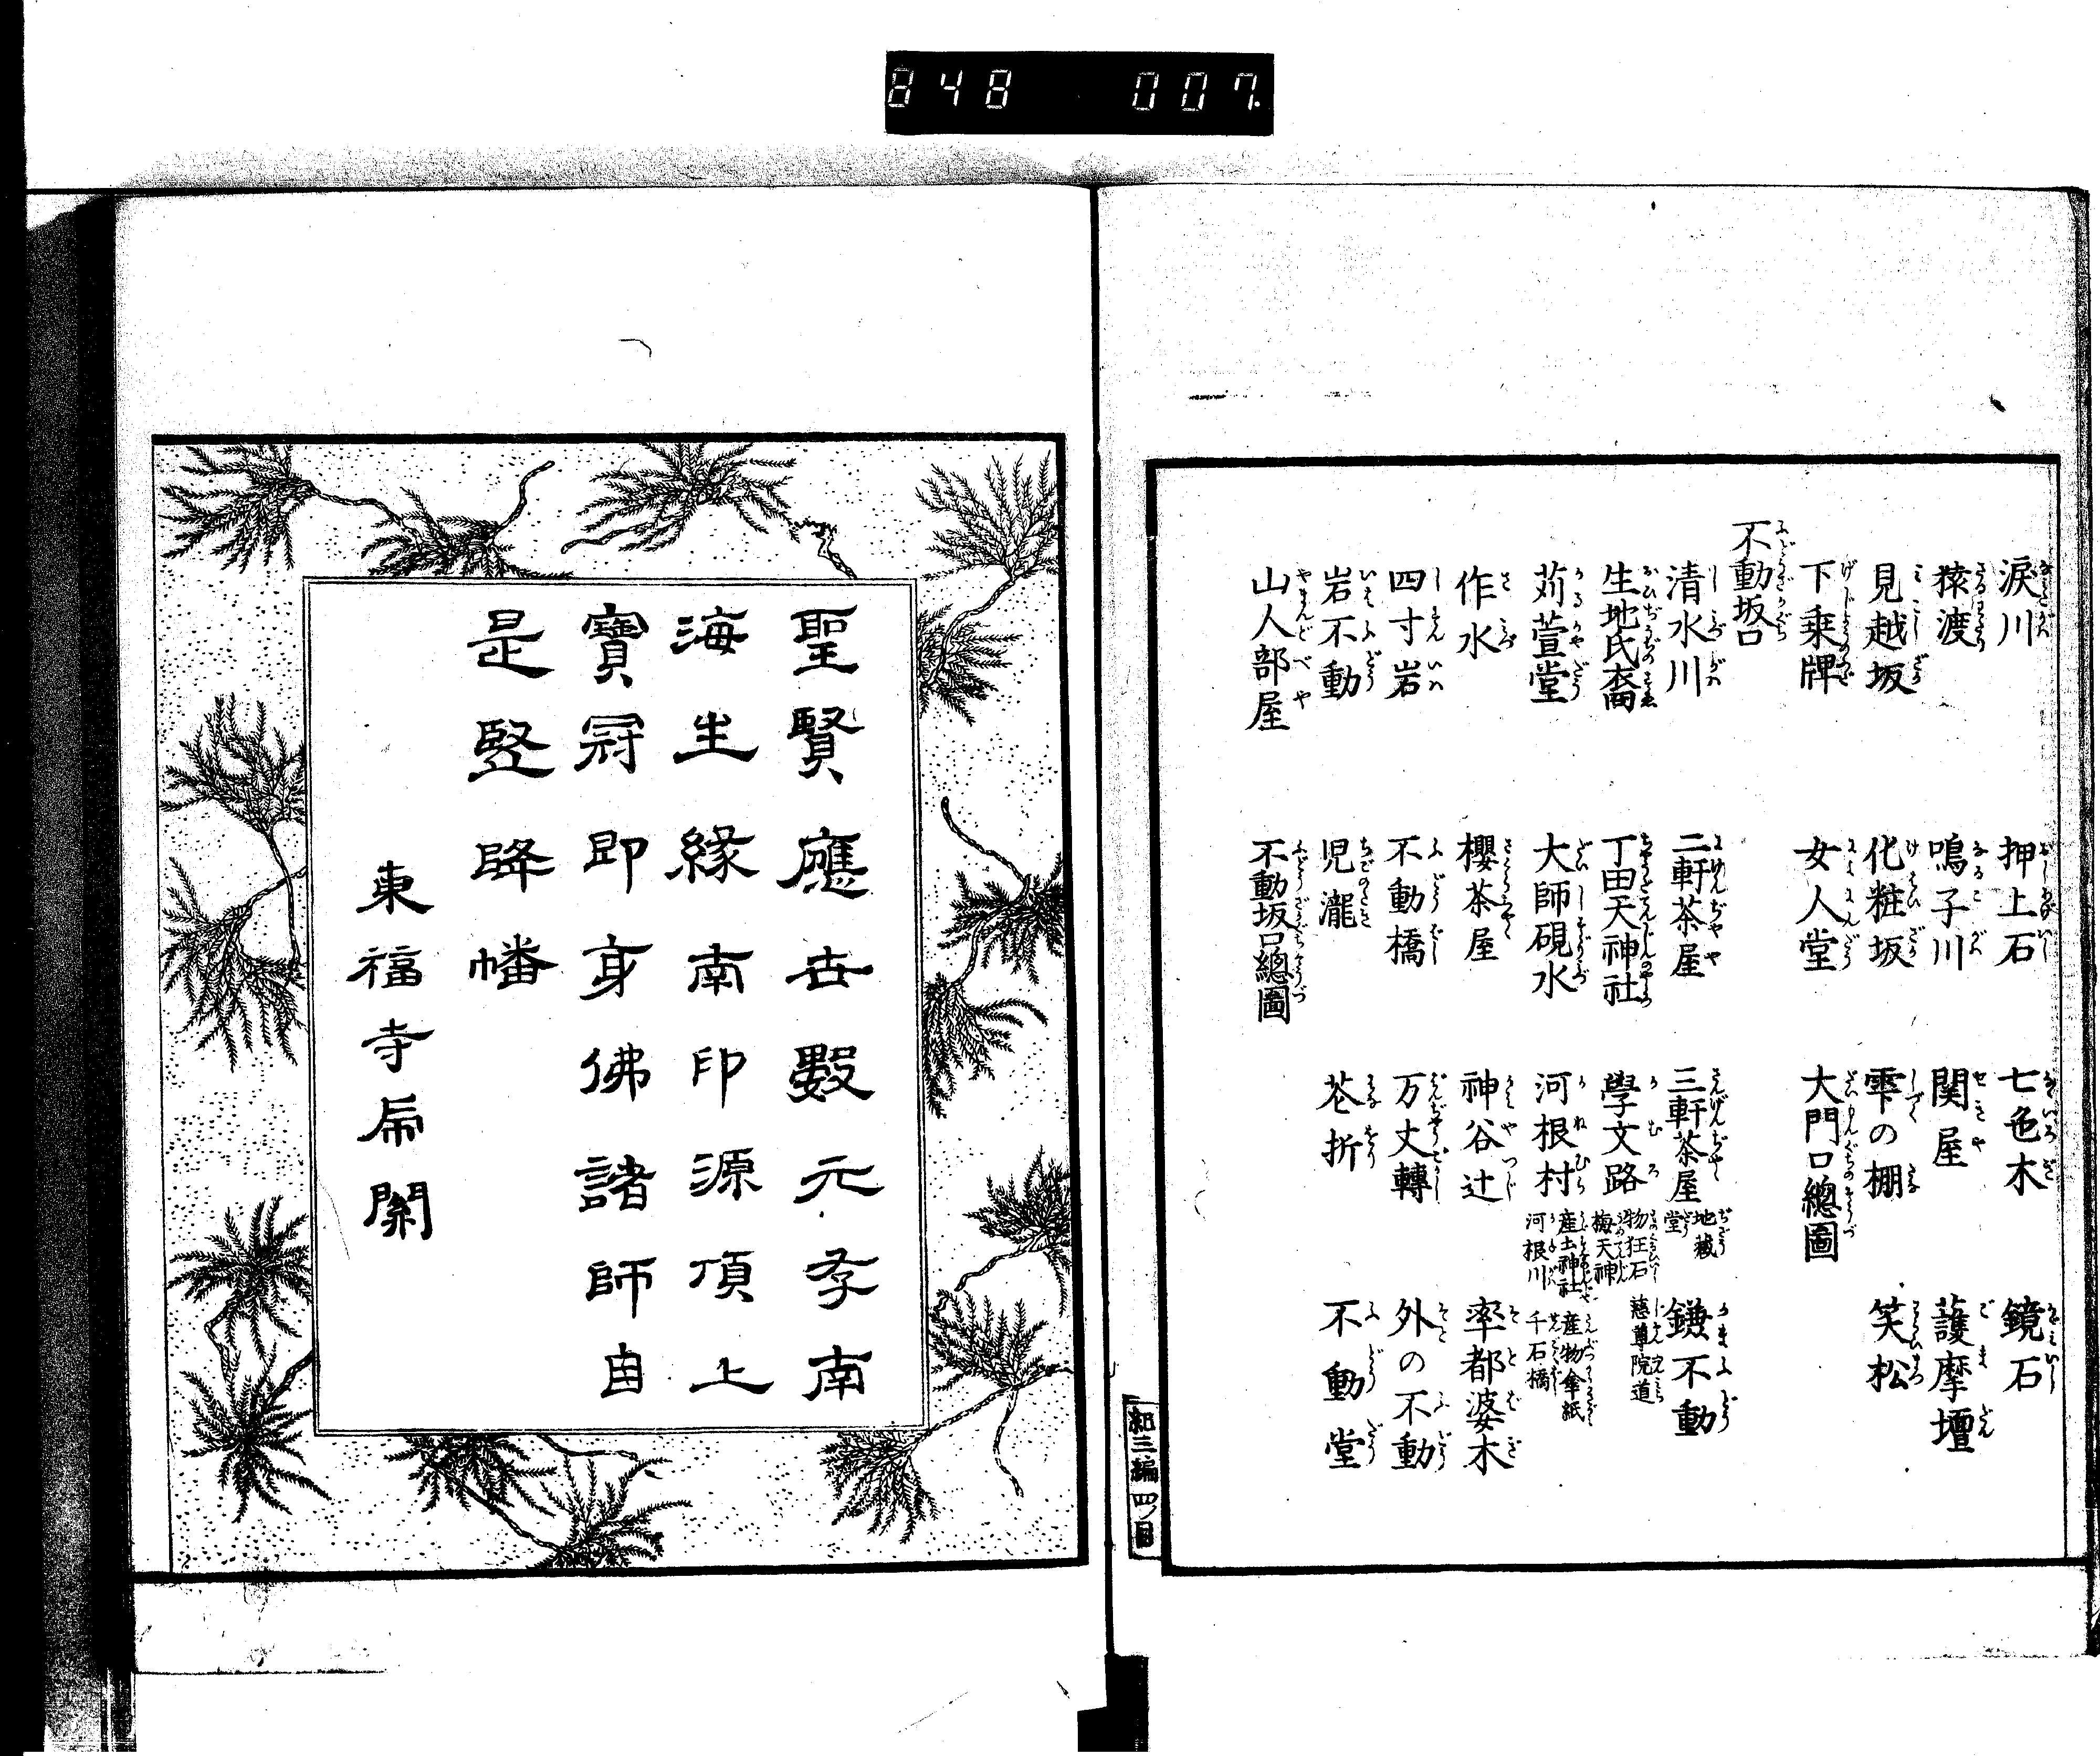 848 007
涙川 押上石 七色木 鏡石
猿渡 鳴子川 関屋 護摩壇
見越坂 化粧坂 雫の棚 笑松
下乗牌 女人堂 大門口總圖
不動坂口
清水川 二軒茶屋 三軒茶屋 地藏堂 鎌不動
生地氏裔 丁田天神社 學文路 物狂石 梅天神 慈尊院道
苅萱堂 大師硯水 河根村 産土神社 河根川 産物傘紙 千石橋
作水 櫻茶屋 神谷辻 率都婆木
四寸岩 不動橋 万丈轉 外の不動
岩不動 児瀧 花折 不動堂
山人部屋 不動坂口總圖
紀三編 四ノ目
聖賢應世數元孝南
海生緣南印源頂上
寶冠即身佛諸師自
是竪降幡
東福寺扁關